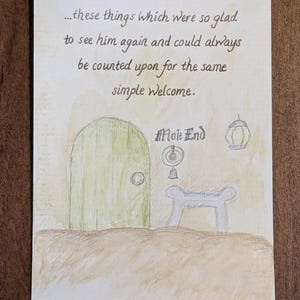 ...these things which were so glad
to see him again and could always
be counted upon for the same
simple welcome.
Mole End